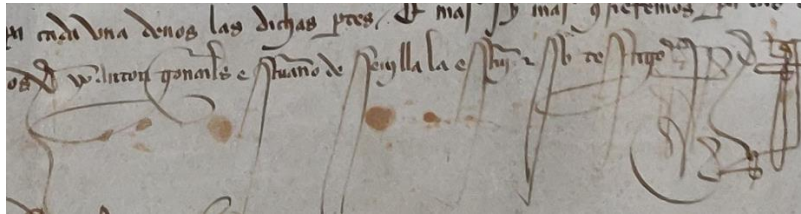 cada una denos las dichas ptes, E mas sy mas qsieremos
os Yo Anton gonçales escriuano de seuilla la escriui & so testigo